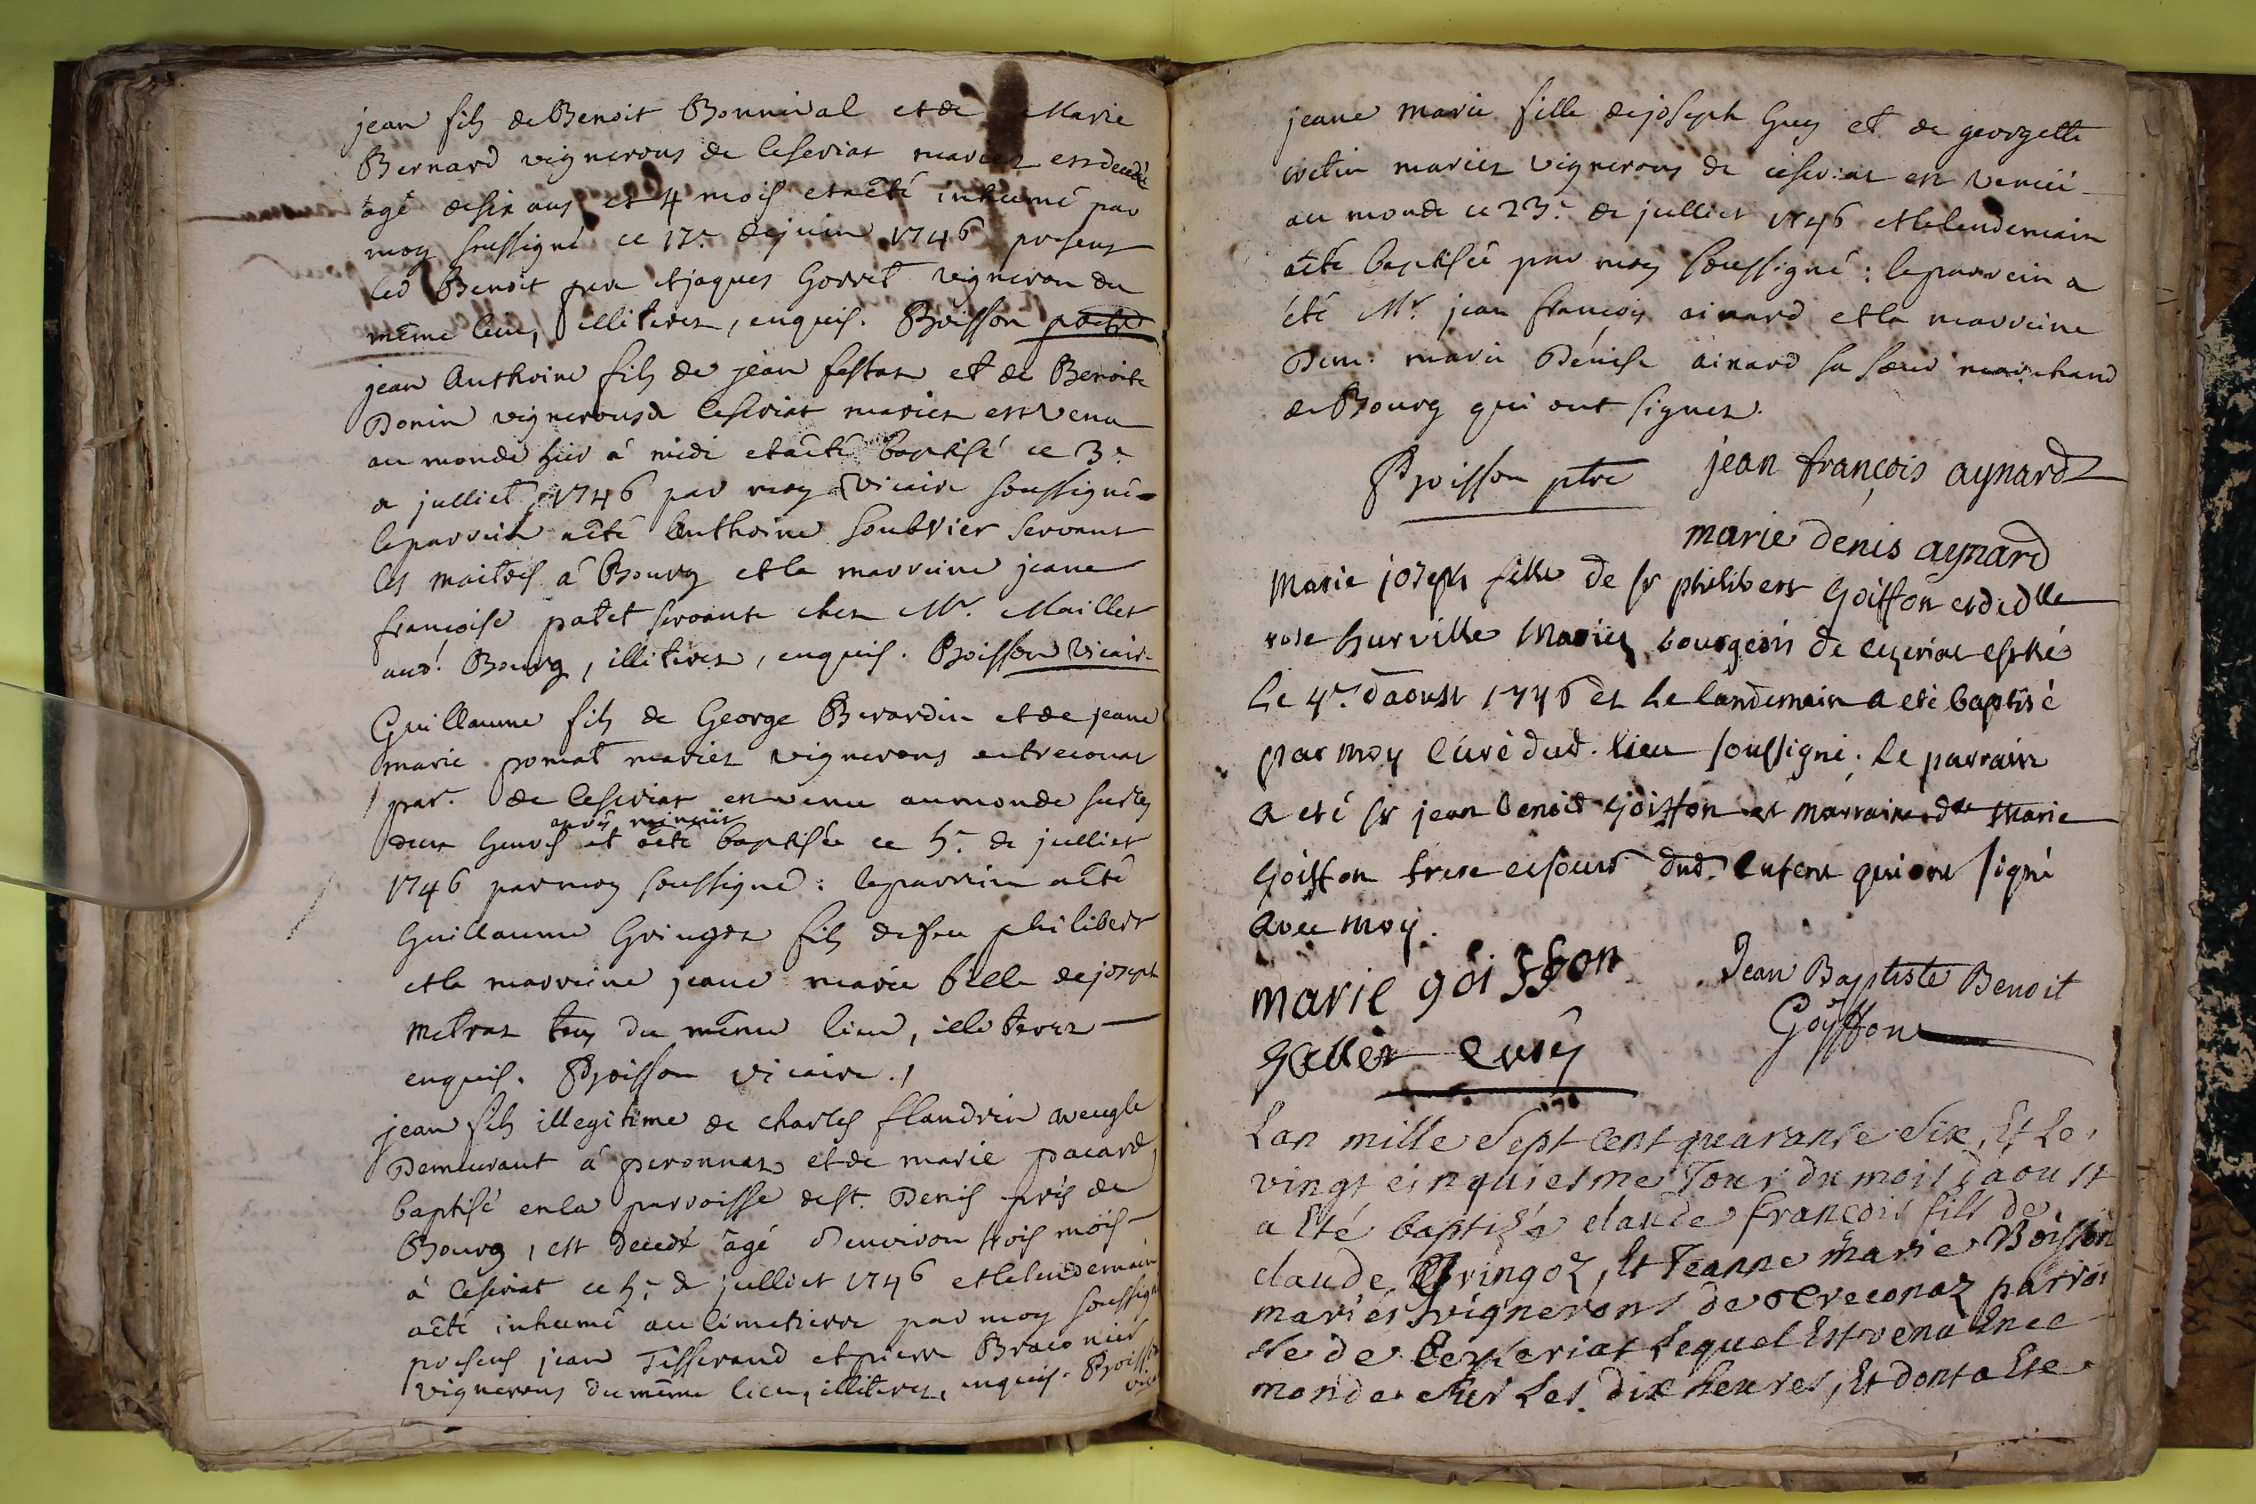 jean fils de Benoit Bonnival et de Marie
Bernard vignerons de Ceseriat mariez est decedé
âgé de six ans et 4 mois et a êté inhumé par
moy soussigné ce 17e de juin 1746 presens
led Benoit pere et jaques Gorret vigneron du
même lieu, illiterez, enquis. Boisson
jean Anthoine fils de jean festas et de Benoite
Donin vignerons de Ceseriat mariez est venu
au monde hier à midi et a êté baptisé ce 3e
de julliet 1746 par moy vicaire soussigné
le parrein a êté Anthoine Soubrier servant
les maitres à Bourg et la marreine jeane
françoise patet servante chez Mr. Maillet
aud. Bourg, illiterez, enquis. Boisson vicair
Guillaume fils de George Berardin et de jeane
marie pomat mariez vignerons
par. de Ceseriat est venu au monde sur les
deux heures et a êté baptisée ce 5e de julliet
après minuit
1746 par moy soussigné : le parrein a êté
Guillaume Gringoz fils de feu philibert
et la marreine jeane marie fille de joseph
metras tous du même lieu, illiterez
enquis. Boisson vicaire.
jean fils illegitime de charles flandrin aveugle
Demeurant à peronnas et de marie pacard
baptisé en la parroisse de st. Denis près de
Bourg, est decedé âgé d'environ trois mois
à Ceseriat ce 5e de julliet 1746 et le lendemain
a êté inhumé au cimetierre par moy soussigné
presens jean Tisserand et pierre Braconier
vignerons du même lieu, illiterez, enquis. Boisson
vic
jeane marie fille de joseph Guy et de georgette
cretin mariez vignerons de ceseriat est venüe
au monde ce 23e de julliet 1746 et le lendemain
a êté baptisée par moy soussigné : le parrein a
êté Mr. jean françois ainard et la marreine
Dem. marie Dénise ainard sa sœur marchand
de Bourg qui ont signez.
Boisson ptre jean françois aynard
marie denis aynard
Marie joseph fille de sr philibert Goiffon et de dlle
rose hurville Mariez bourgeois de cezeriat est né
Le 4e d'aoust 1746 et Le landemain a eté baptisé
par moy Curé dud. lieu soussigné. Le parrain
a eté sr jean benoid Goiffon et marraine dlle Marie
Goiffon frere et soeur dud. enfent qui ont signé
avec moy.
marie goiffon Jean Baptiste Benoit
Goyffon
curé
Lan mille Sept cent quarante Six, Et Le
vingt cinquiesme Jour du mois d'aoust
a Eté baptizé claude françois fils de
claude Gringoz, Et Jeanne Marie Boisson
mariés vignerons de parroi
sse de Cezeriat Lequel Est venu En ce
monde Sur Les dix heures, Et dont a Ete